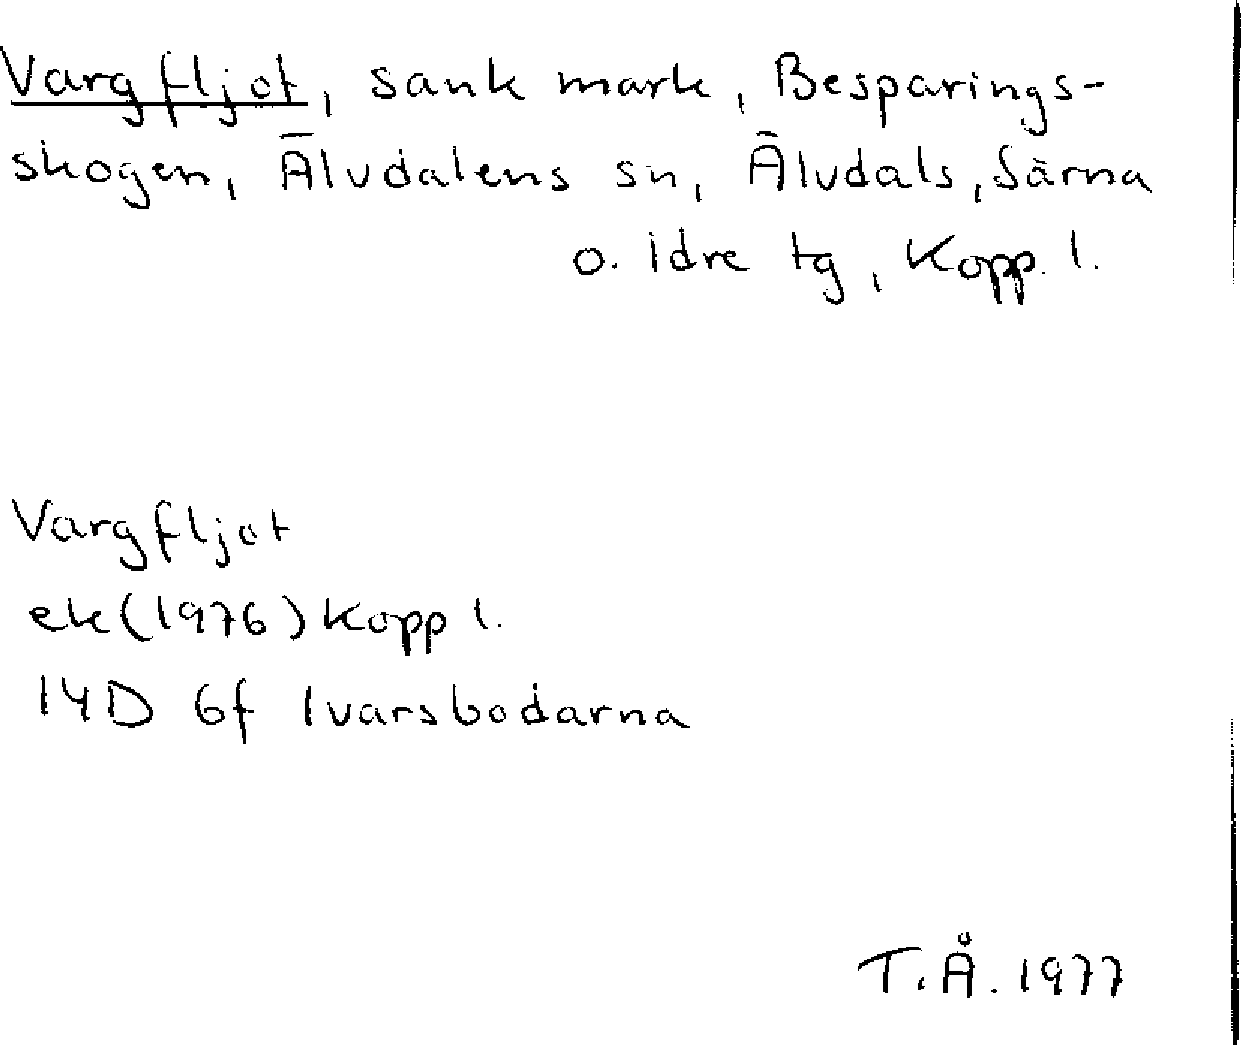 Vargfljot, sank mark, Besparings-
skogen, Älvdalens sn, Älvdals, Särna
o. Idre tg, Kopp. l.
Vargfljot
ek (1976) Kopp l.
14D 6f Ivarsbodarna
T.Å. 1977